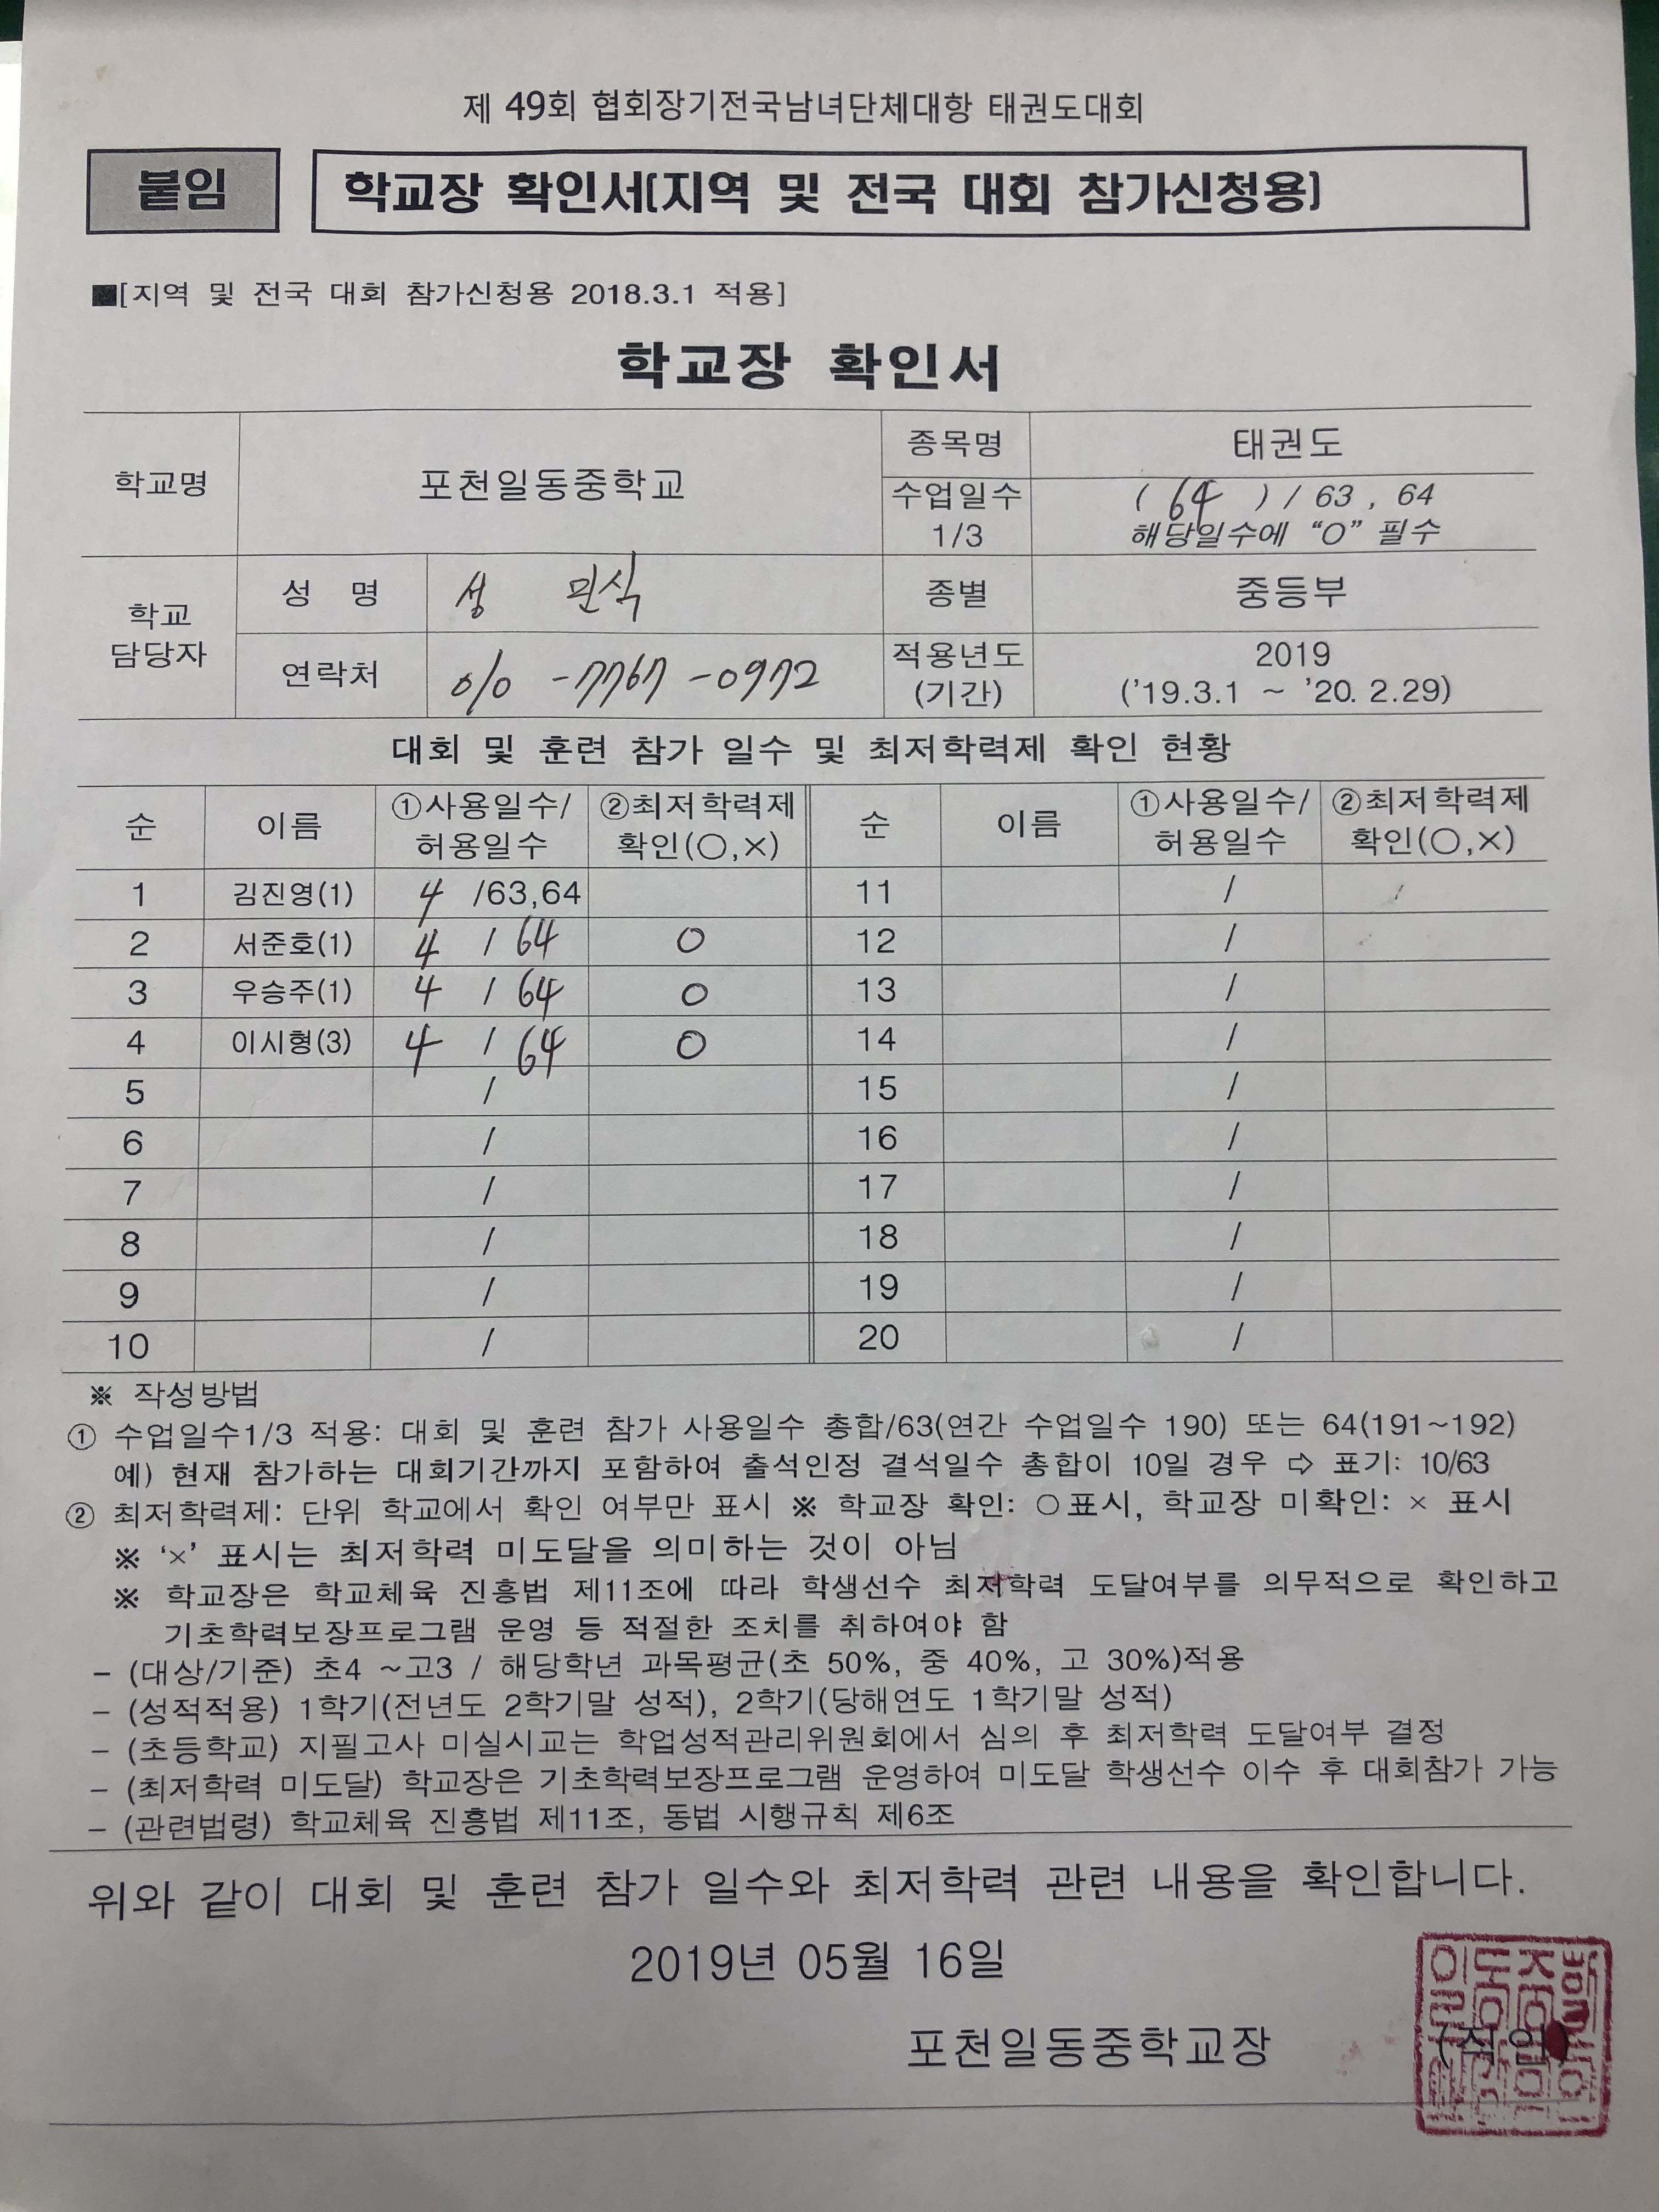 제 49회 협회장기전국남녀단체대항 태권도대회
붙임
학교장 확인서(지역 및 전국 대회 참가신청용)
■[지역 및 전국 대회 참가신청용 2018.3.1 적용]
학교장 확인서
학교명 포천일동중학교 종목명 태권도
수업일수 1/3 ( 64 ) / 63 , 64
해당일수에 “O” 필수
학교 담당자 성 명 성 민식 종별 중등부
연락처 010 -7767 -0972 적용년도 (기간) 2019
('19.3.1 ~ '20. 2.29)
대회 및 훈련 참가 일수 및 최저학력제 확인 현황
순 이름 ①사용일수/허용일수 ②최저학력제 확인(○,×) 순 이름 ①사용일수/허용일수 ②최저학력제 확인(○,×)
1 김진영(1) 4 /63,64 11 /
2 서준호(1) 4 / 64 O 12 /
3 우승주(1) 4 / 64 O 13 /
4 이시형(3) 4 / 64 O 14 /
5 / 15 /
6 / 16 /
7 / 17 /
8 / 18 /
9 / 19 /
10 / 20 /
※ 작성방법
① 수업일수1/3 적용: 대회 및 훈련 참가 사용일수 총합/63(연간 수업일수 190) 또는 64(191~192)
예) 현재 참가하는 대회기간까지 포함하여 출석인정 결석일수 총합이 10일 경우 ⇨ 표기: 10/63
② 최저학력제: 단위 학교에서 확인 여부만 표시 ※ 학교장 확인: ○표시, 학교장 미확인: × 표시
※ ‘×’ 표시는 최저학력 미도달을 의미하는 것이 아님
※ 학교장은 학교체육 진흥법 제11조에 따라 학생선수 최저학력 도달여부를 의무적으로 확인하고
기초학력보장프로그램 운영 등 적절한 조치를 취하여야 함
– (대상/기준) 초4 ~고3 / 해당학년 과목평균(초 50%, 중 40%, 고 30%)적용
– (성적적용) 1학기(전년도 2학기말 성적), 2학기(당해연도 1학기말 성적)
– (초등학교) 지필고사 미실시교는 학업성적관리위원회에서 심의 후 최저학력 도달여부 결정
– (최저학력 미도달) 학교장은 기초학력보장프로그램 운영하여 미도달 학생선수 이수 후 대회참가 가능
– (관련법령) 학교체육 진흥법 제11조, 동법 시행규칙 제6조
위와 같이 대회 및 훈련 참가 일수와 최저학력 관련 내용을 확인합니다.
2019년 05월 16일
포천일동중학교장 (직인)